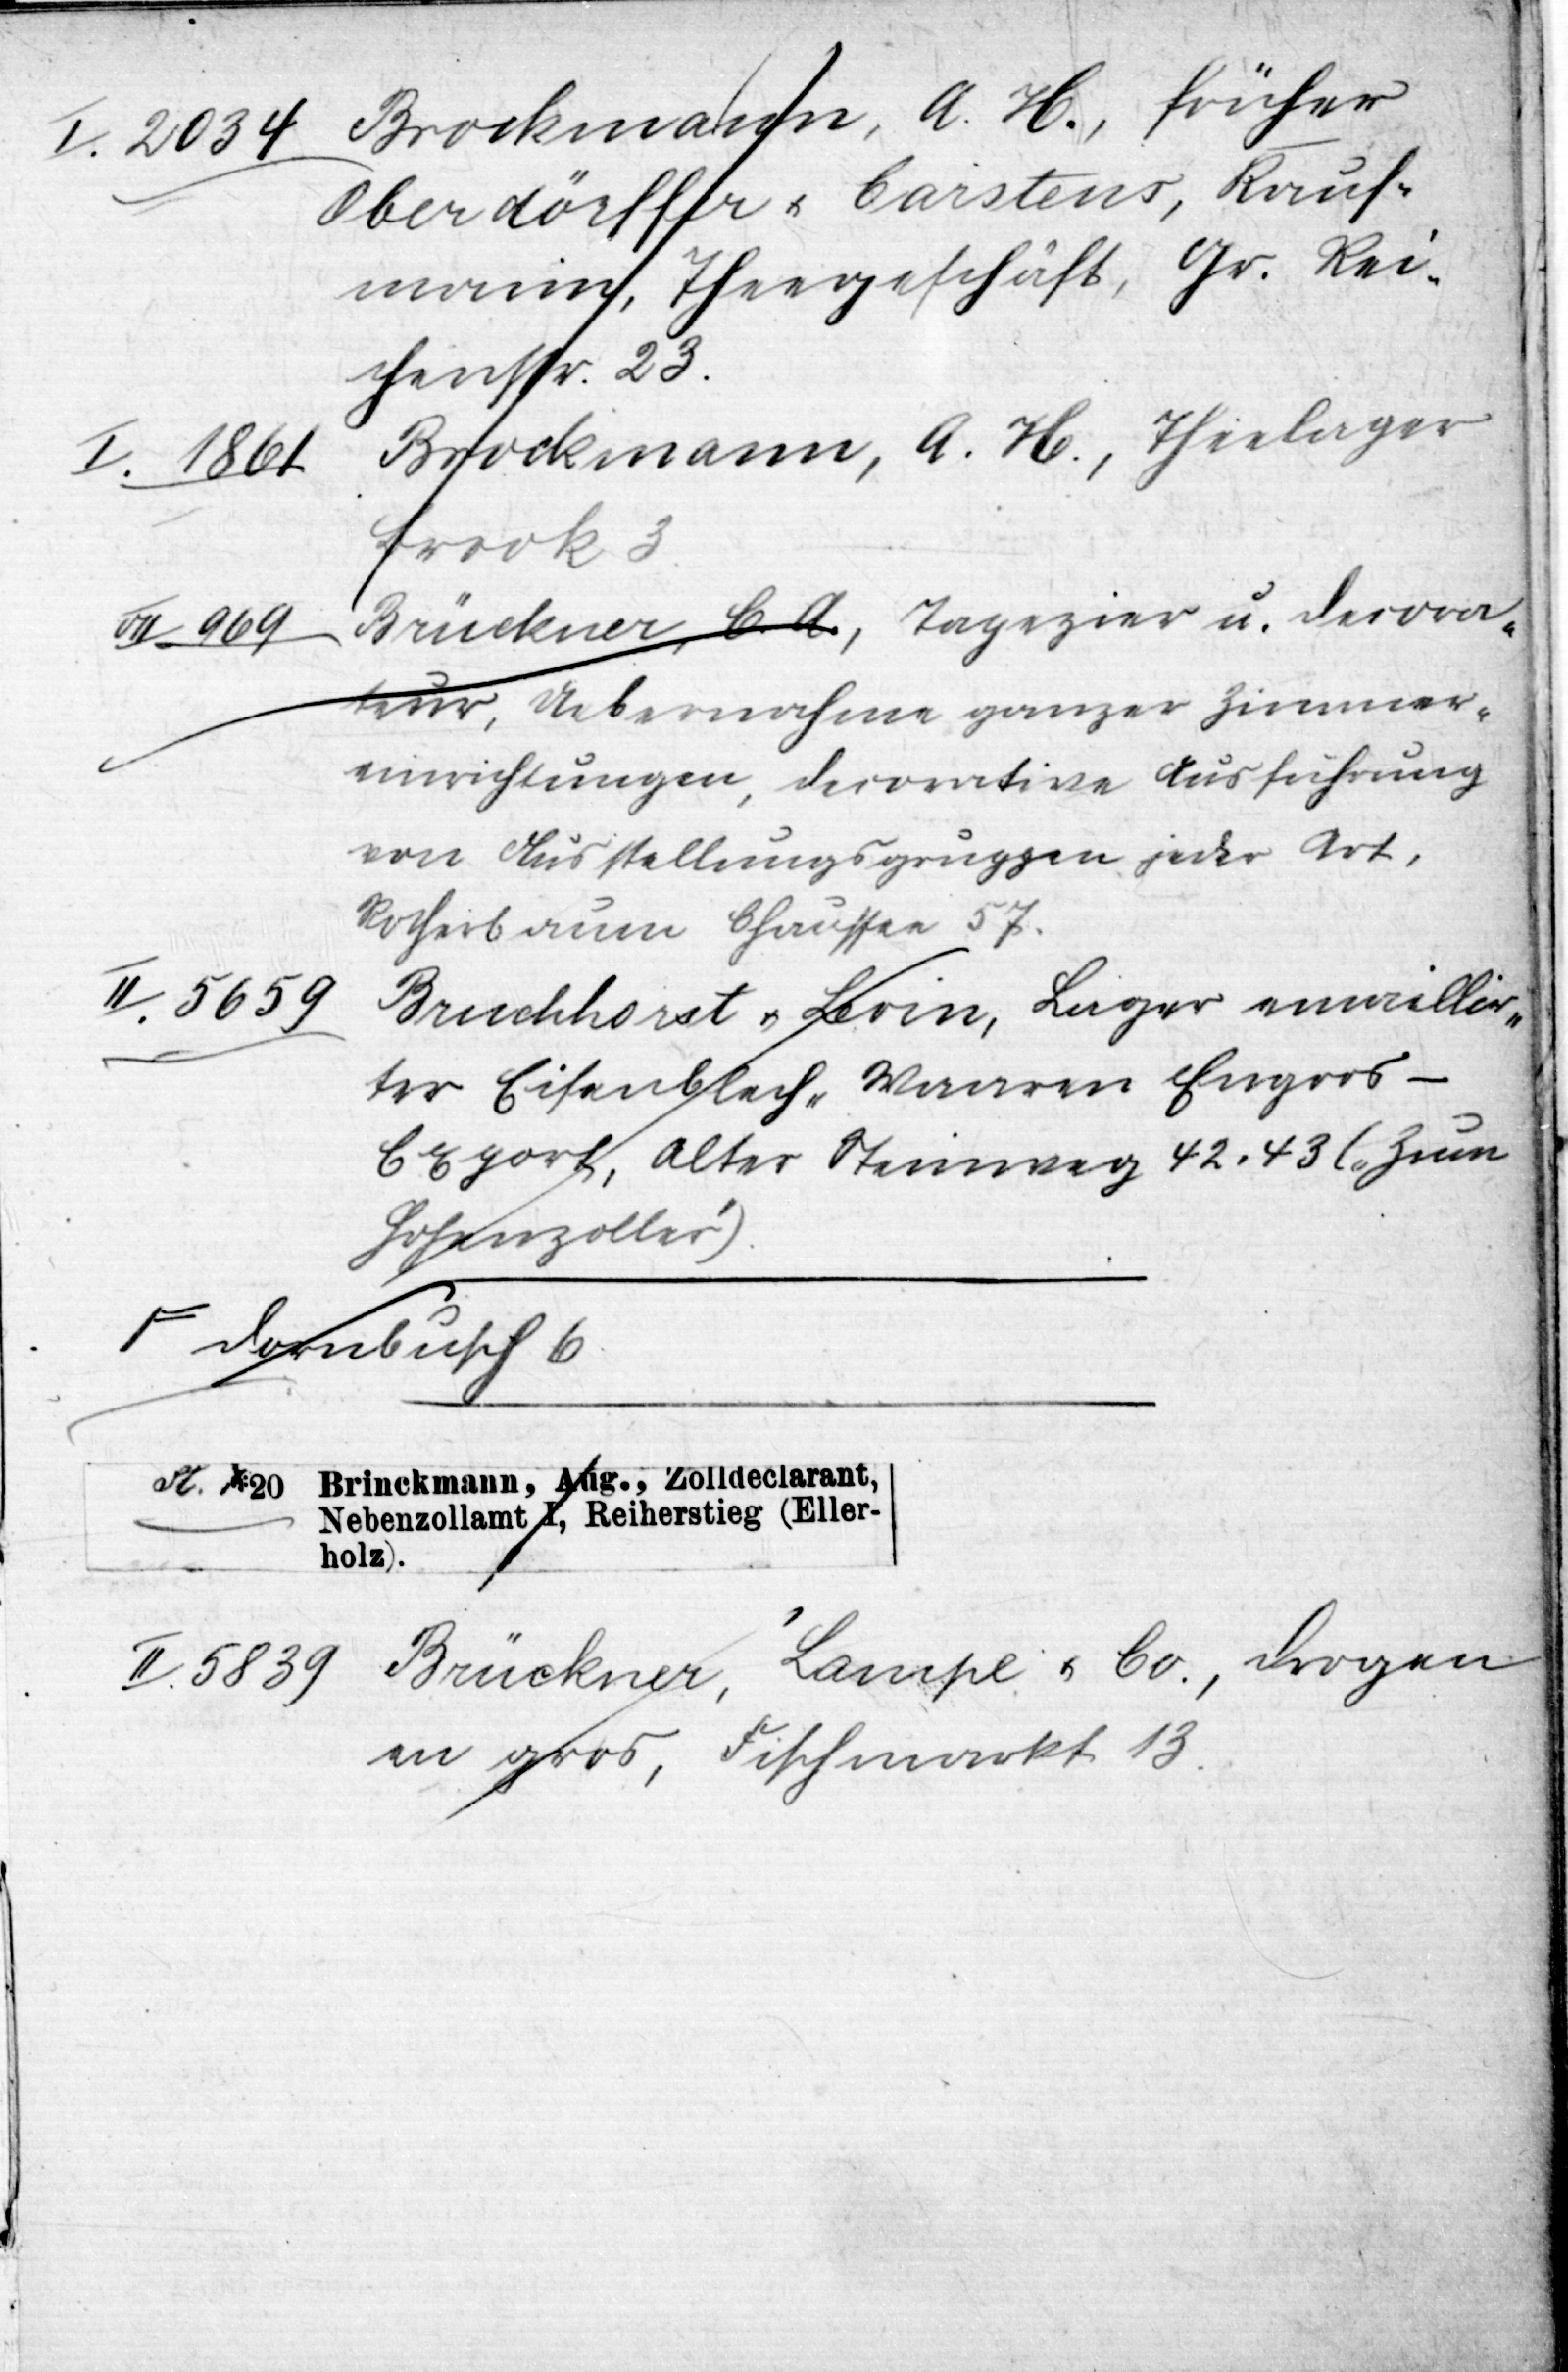 I. 2034 Brockmann, A. H., früher
Oberdörffer & Carstens, Kauf-
mann, Theegeschäft, Gr. Rei-
chenstr. 23.
I. 1861 Brockmann, A. H., Theelager
brook 3
VII 969 Brückner, C. A., Tapezier u. Decora-
teur, Uebernahme ganzer Zimmer-
einrichtungen, decorative Ausführung
von Ausstellungsgruppen jeder Art,
Rotherbaum Chaussee 57.
II. 5659 Bruchhorst & Levin, Lager emaillir-
ter Eisenblech-Waaren Engros-
Export, Alter Steinweg 42.43 („Zum
Hohenzoller")
Dornbusch 6
St. 20 Brinckmann, Aug., Zolldeclarant,
Nebenzollamt I, Reiherstieg (Eller-
holz).
II. 5839 Brückner, Lampe & Co., Drogen
en gros, Fischmarkt 13.